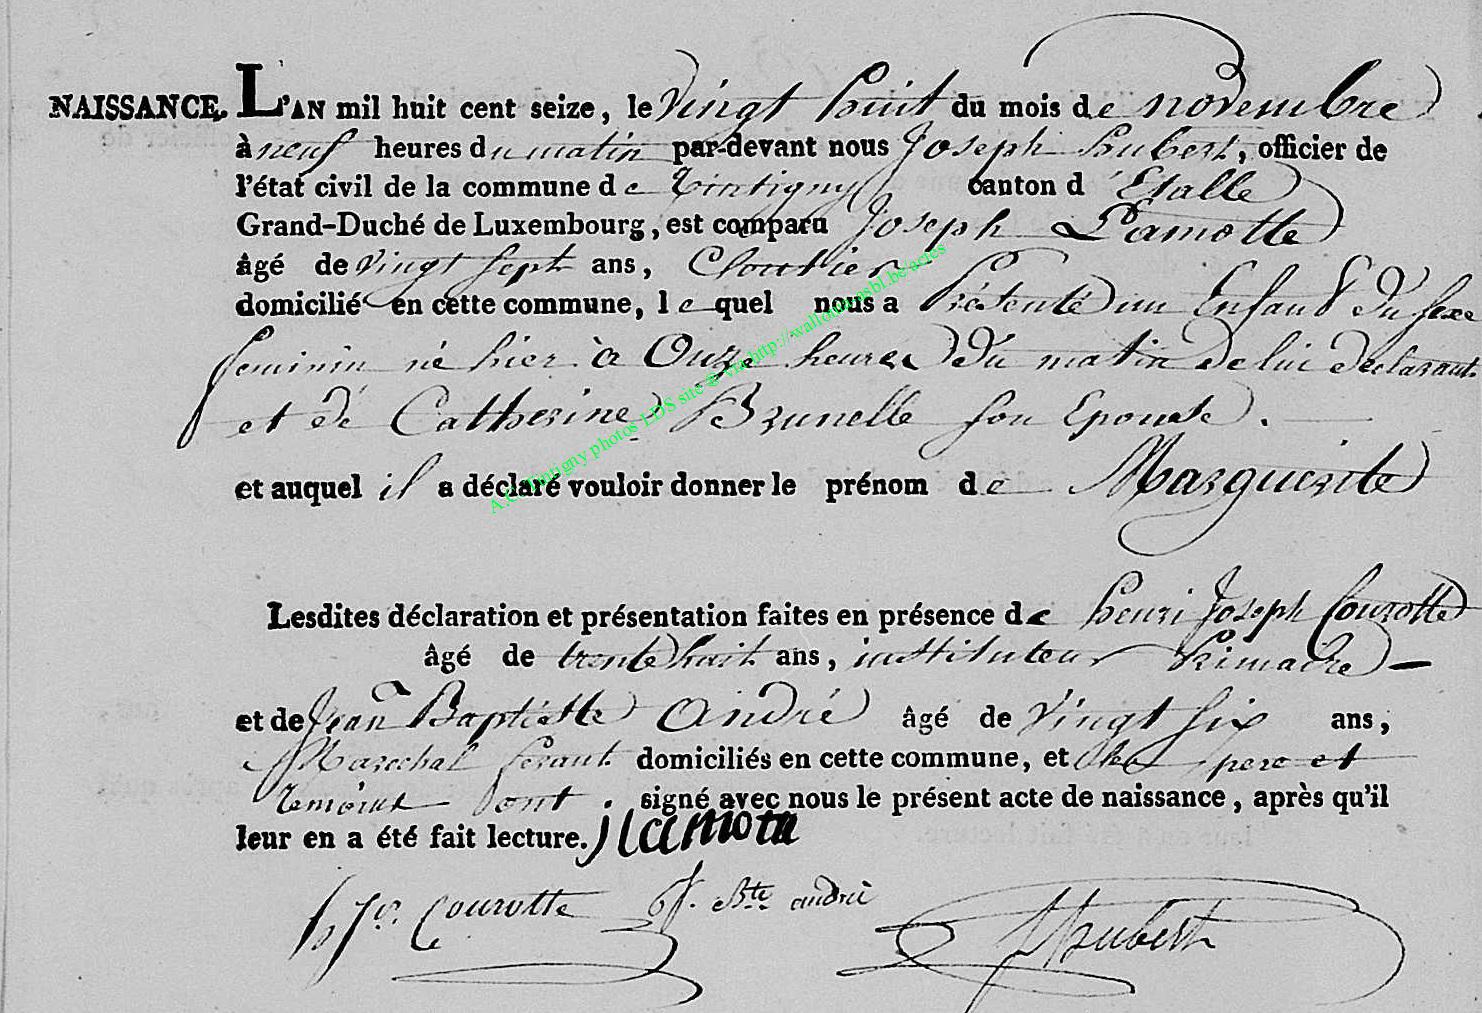 NAISSANCE. L'AN mil huit cent seize, le vingt huit du mois de novembre
à neuf heures du matin par-devant nous Joseph hubert, officier de
l'état civil de la commune de Tintigny canton d'Etalle
Grand-Duché de Luxembourg, est comparu Joseph Lamotte
âgé de vingt sept ans, Cloutier
domicilié en cette commune, lequel nous a Présenté un Enfant du sexe
feminin né hier à Onze heures du matin de lui declarant
et de Catherine Brunelle son Epouse.
et auquel il a déclaré vouloir donner le prénom de Marguerite
Lesdites déclaration et présentation faites en présence de henri Joseph Courotte
âgé de trente huit ans, instituteur Primaire
et de Jean Baptiste André âgé de vingt six ans,
Marechal ferant domiciliés en cette commune, et les pere et
temoins sont. signé avec nous le présent acte de naissance, après qu'il
leur en a été fait lecture. J lamota
h Js. Courotte J. Bte andrié
JHubert
A.C. Tintigny photos LDS site @ via http://wallonia-asbl.be/actes